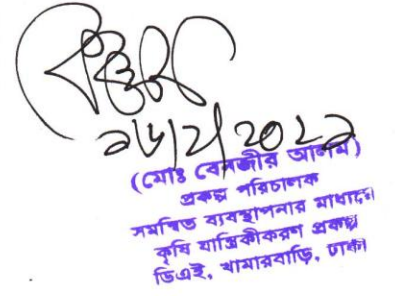 (মোঃ বেনজীর আলম)
প্রকল্প পরিচালক
সমন্বিত ব্যবস্থাপনার মাধ্যমে
কৃষি যান্ত্রিকীকরণ প্রকল্প
ডিএই, খামারবাড়ি, ঢাকা